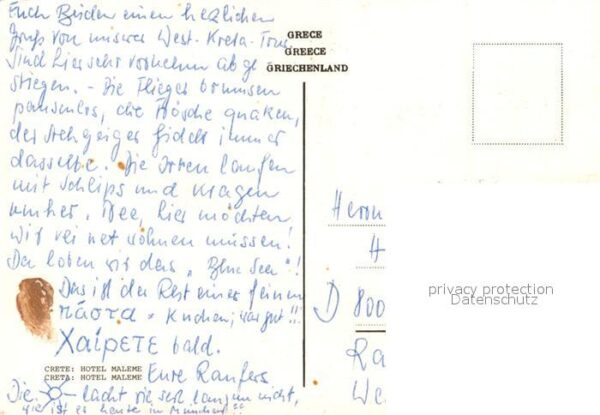 Euch Beiden einen herzlichen
Gruß von unserer West-Kreta-Tour.
Sind hier sehr vornehm abge
stiegen. - Die Flieger brummen
pausenlos, die Frösche quaken,
der Stehgeiger fiedelt immer
dasselbe. Die Herren laufen
mit Schlips und Kragen
umher. Nee, hier möchten
wir nicht wohnen müssen!
Da loben wir das "Blue Sea"!
Das ist der Rest einer feinen
πάστα - Kuchen, war gut!!
Χαίρετε bald.
Eure Ranfers
Die lacht hier seit langem nicht,
wie ist es heute in München??
CRETE: HOTEL MALEME
CRETA: HOTEL MALEME
GRECE
GREECE
GRIECHENLAND
Herrn
H
D 800
Ra
We
privacy protection
Datenschutz